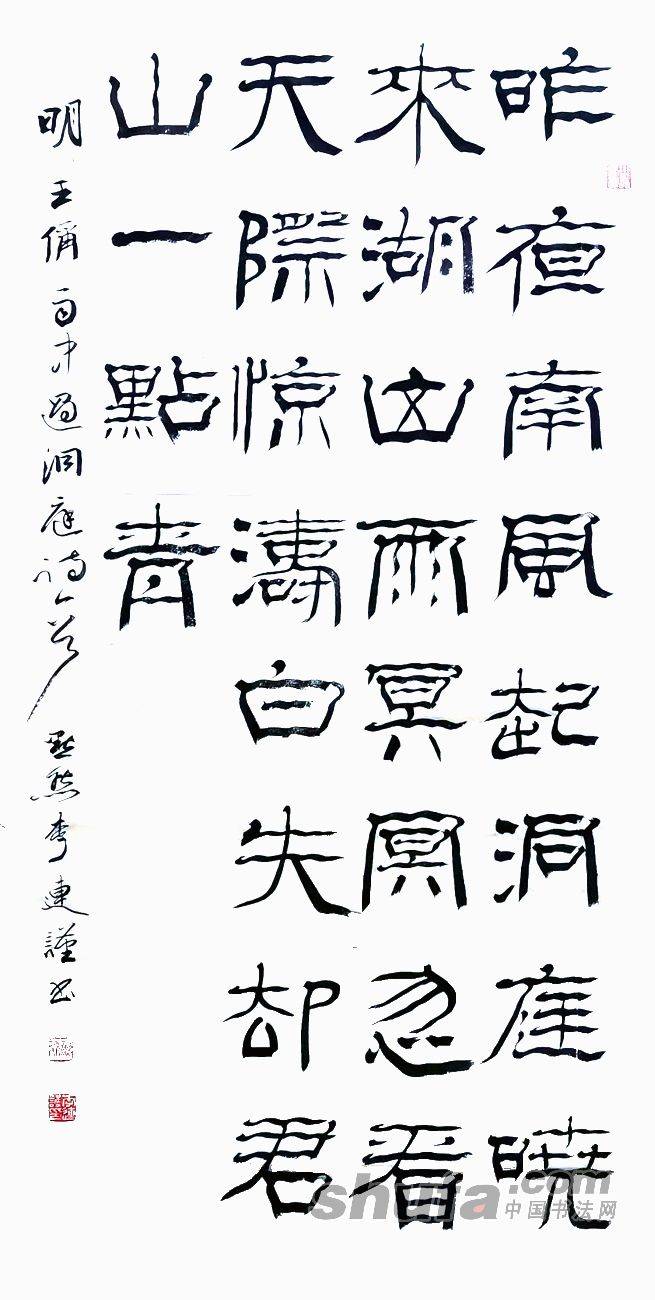 昨夜南風起洞庭曉
來湖山雨冥冥忽看
天際惊濤白失却君
山一點青
明王偁雨中過洞庭詩一首 默然李連謹書
shufa.com
中国书法网